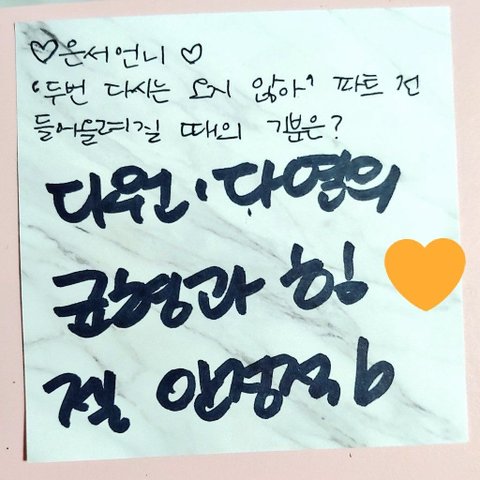 ♡은서언니♡
'두번 다시는 오지 않아' 파트 전
들어올려질 때의 기분은?
다원·다영의
균형과 힘
젤 안정적 b